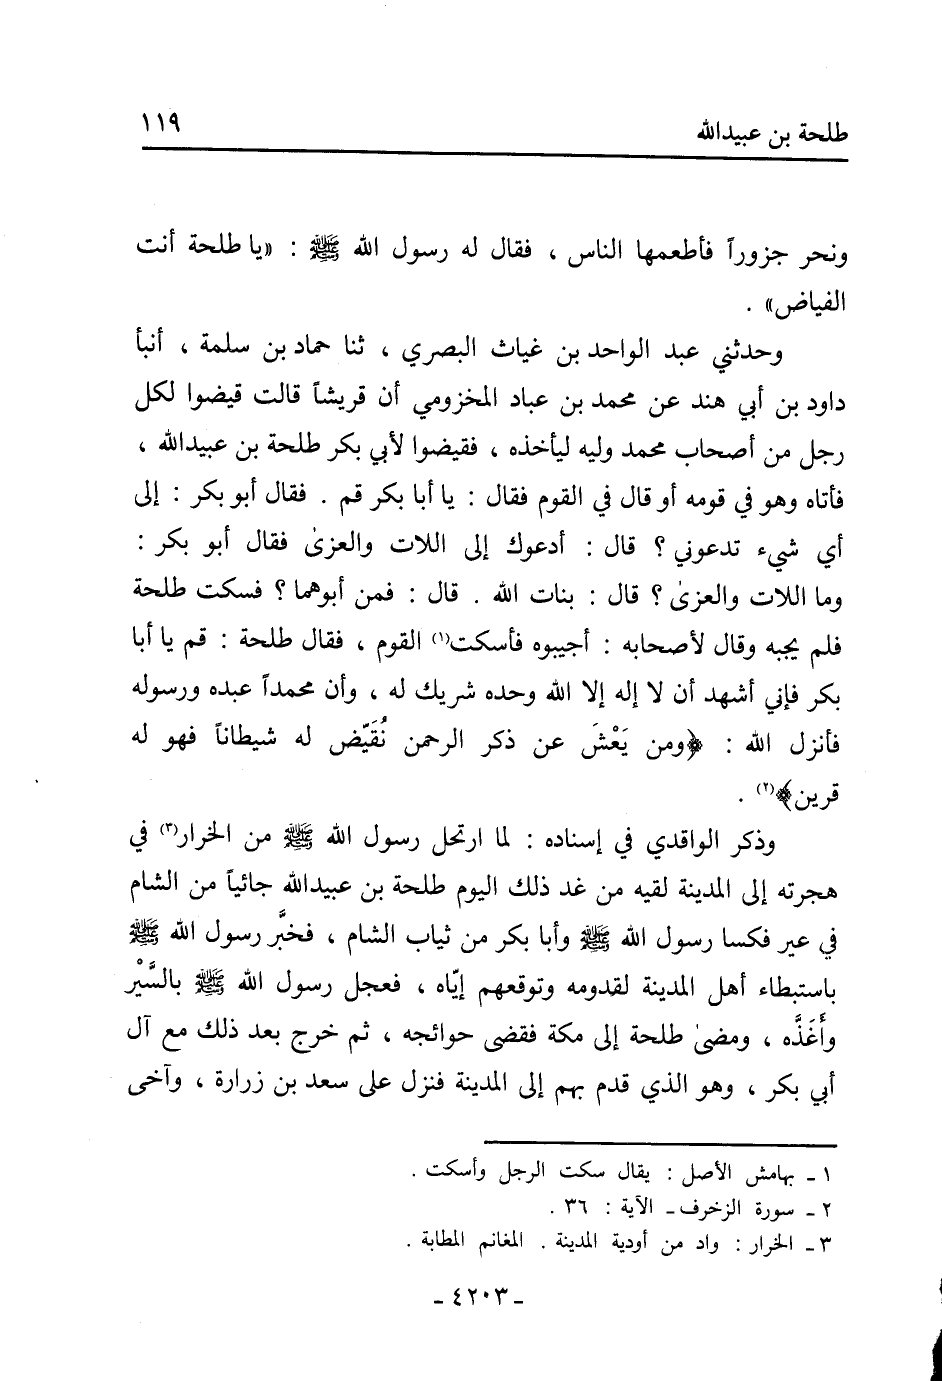 طلحة بن عبيدالله ١١٩
ونحر جزوراً فأطعمها الناس ، فقال له رسول الله ﷺ : «يا طلحة أنت
الفياض» .
وحدثني عبد الواحد بن غياث البصري ، ثنا حماد بن سلمة ، أنبأ
داود بن أبي هند عن محمد بن عباد المخزومي أن قريشاً قالت قيضوا لكل
رجل من أصحاب محمد وليه ليأخذه ، فقيضوا لأبي بكر طلحة بن عبيدالله ،
فأتاه وهو في قومه أو قال في القوم فقال : يا أبا بكر قم . فقال أبو بكر : إلى
أي شيء تدعوني ؟ قال : أدعوك إلى اللات والعزىٰ فقال أبو بكر :
وما اللات والعزىٰ ؟ قال : بنات الله . قال : فمن أبوهما ؟ فسكت طلحة
فلم يجبه وقال لأصحابه : أجيبوه فأسكت(١) القوم ، فقال طلحة : قم يا أبا
بكر فإني أشهد أن لا إله إلا الله وحده شريك له ، وأن محمداً عبده ورسوله
فأنزل الله : ﴿ومن يَعْشَ عن ذكر الرحمن نُقَيّض له شيطاناً فهو له
قرين﴾(٢) .
وذكر الواقدي في إسناده : لما ارتحل رسول الله ﷺ من الخرار(٣) في
هجرته إلى المدينة لقيه من غد ذلك اليوم طلحة بن عبيدالله جائياً من الشام
في عير فكسا رسول الله ﷺ وأبا بكر من ثياب الشام ، فخبَّر رسول الله ﷺ
باستبطاء أهل المدينة لقدومه وتوقعهم إيّاه ، فعجل رسول الله ﷺ بالسَّيْر
وأَغَذَّه ، ومضىٰ طلحة إلى مكة فقضى حوائجه ، ثم خرج بعد ذلك مع آل
أبي بكر ، وهو الذي قدم بهم إلى المدينة فنزل على سعد بن زرارة ، وآخى
١ ـ بهامش الأصل : يقال سكت الرجل وأسكت .
٢ ـ سورة الزخرف ـ الآية : ٣٦ .
٣ ـ الخرار : واد من أودية المدينة . المغانم المطابة .
ـ ٤٢٠٣ ـ